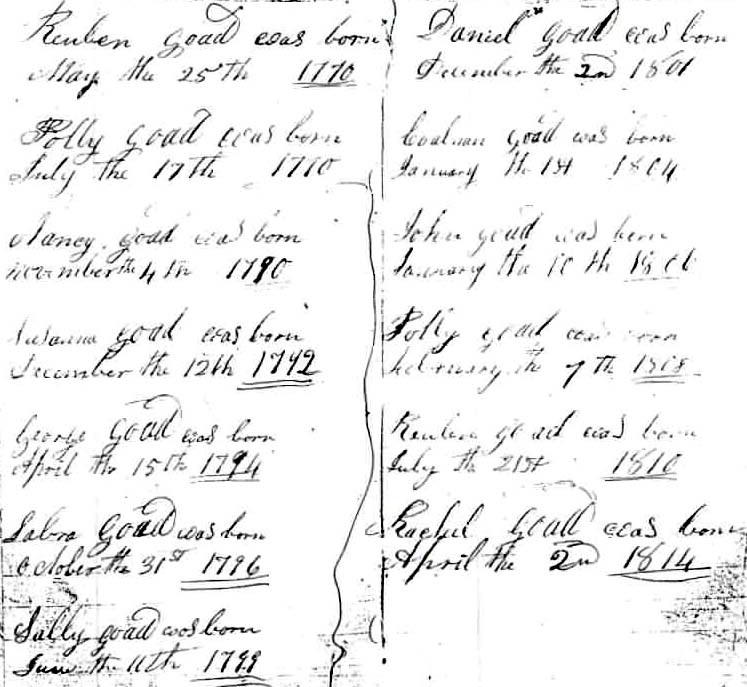 Reuben goad was born
May the 25th 1770
Polly goad was born
July the 17th 1770
Nancy goad was born
November the 4th 1790
Susanna goad was born
December the 12th 1792
George goad was born
April the 15th 1794
Sabra goad was born
October the 31st 1796
Sally goad was born
June the 11th 1799
Daniel goad was born
December the 2nd 1801
Coalman goad was born
January the 1st 1804
John goad was born
January the 10th 1806
Polly goad was born
February the 7th 1808
Reuben goad was born
July the 21st 1810
Rachel goad was born
April the 2nd 1814